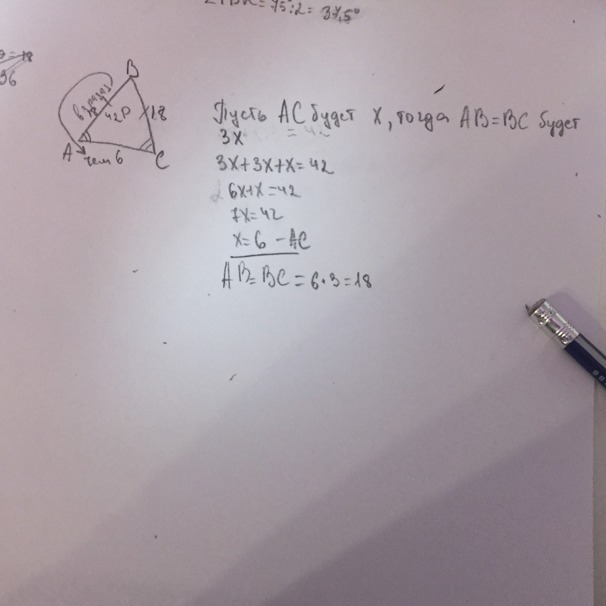 = 75°:2 = 37,5°
36
B
в 3 раза >
42 P
18
A
чем 6
C
Пусть AC будет x, тогда AB=BC будет
3x
3x+3x+x=42
6x+x=42
7x=42
x=6 - AC
AB=BC=6·3=18